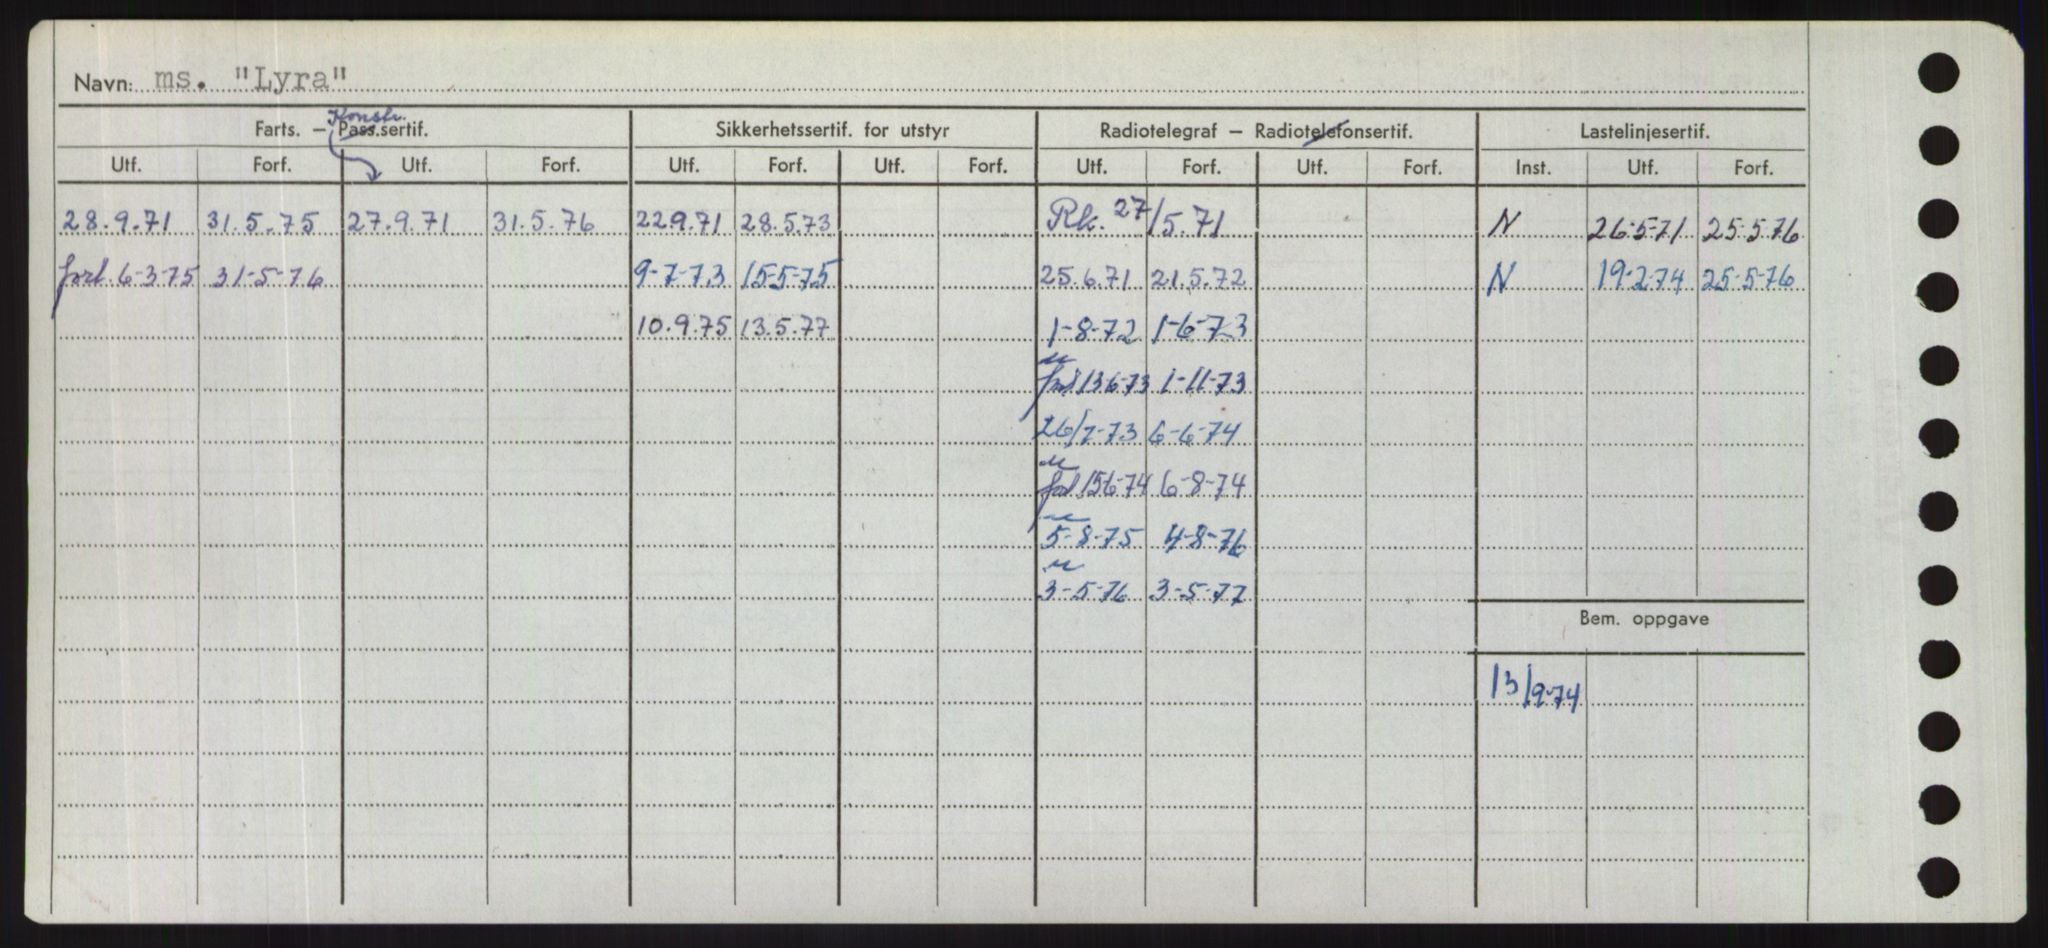 Navn: ms. "Lyra"
Konstr.
Farts. – Pass.sertif. Sikkerhetssertif. for utstyr Radiotelegraf – Radiotelefonsertif. Lastelinjesertif.
Utf. Forf. Utf. Forf. Utf. Forf. Utf. Forf. Utf. Forf. Utf. Forf. Inst. Utf. Forf.
28.9.71 31.5.75 27.9.71 31.5.76 22.9.71 28.5.73 Rk. 27/5.71 N 26-5-71 25-5-76
forl. 6-3-75 31-5-76 9-7-73 15-5-75 25.6.71 21.5.72 N 19-2-74 25-5-76
10.9.75 13.5.77 1-8-72 1-6-73
forl 13-6-73 1-11-73
26/7-73 6-6-74
forl 15-6-74 6-8-74
5-8-75 4-8-76
3-5-76 3-5-77
Bem. oppgave
13/9-74